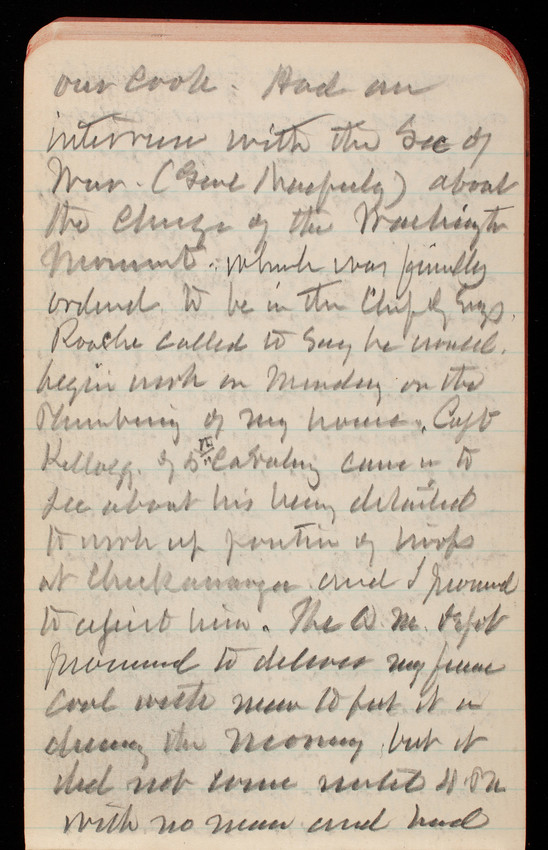 our cook. Had an
interview with the Sec of
War. (Genl Macfeely) about
the charge of the Washington
Monumt. which was finally
ordered to be in the Chf of Engs.
Roache called to say he would
begin work on Monday on the
Plumbing of my house. Capt
Kellogg of 5th Cavalry came in to
see about his being detailed
to work up position of troops
at Chickamauga and I promised
to assist him. The Q. M. Depot
promised to deliver my furnace
coal with men to put it in
during the morning, but it
did not come until 4 PM
with no men and had